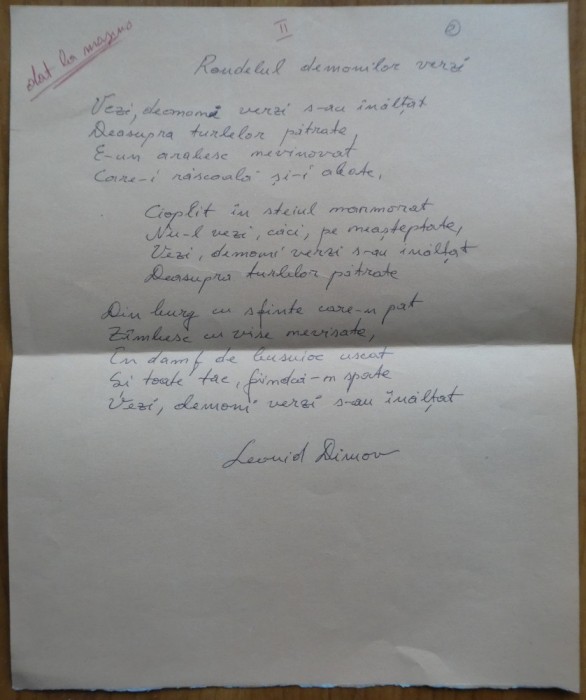 dat la mașină
II
2
Rondelul demonilor verzi
Vezi, demoni verzi s-au înălțat
Deasupra turlelor pătrate,
E-un arabesc nevinovat
Care-i răscoală și-i abate.
Cioplit în steiul marmorat
Nu-l vezi, căci, pe neașteptate,
Vezi, demoni verzi s-au înălțat
Deasupra turlelor pătrate
Din burg cu sfinte care-n pat
Zîmbesc cu vise nevisate,
En damf de busuioc uscat
Și toate tac, fiindcă-n spate
Vezi, demoni verzi s-au înălțat
Leonid Dimov